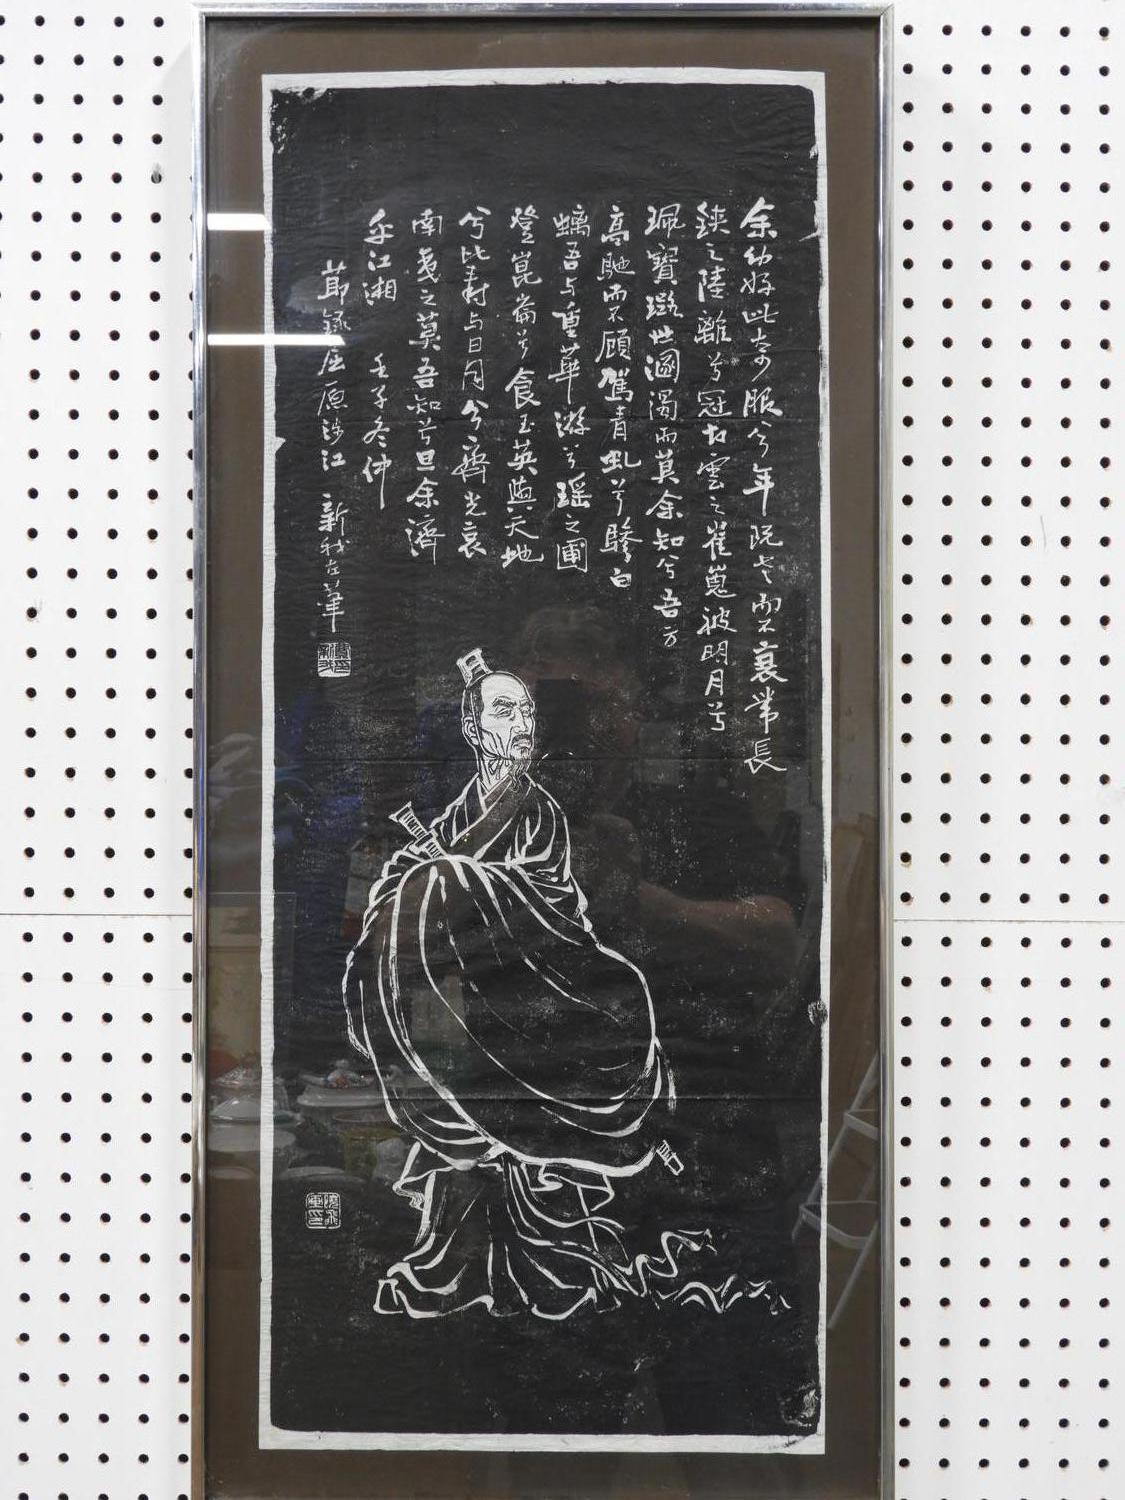 余幼好此奇服兮年既老而不衰带長
鋏之陸離兮冠切雲之崔嵬被明月兮
珮寶璐世溷濁而莫余知兮吾方
高馳而不顧駕青虬兮驂白
螭吾与重華游兮瑶之圃
登崑崙兮食玉英與天地
兮比壽与日月兮齊光哀
南夷之莫吾知兮旦余濟
乎江湘 壬子冬仲
節錄屈原涉江 新我左筆